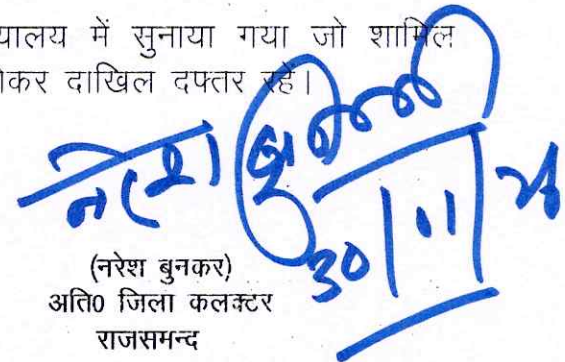 यालय में सुनाया गया जो शामिल
ोकर दाखिल दफ्तर रहें।
नरेश बुनकर
30/11/
(नरेश बुनकर)
अति0 जिला कलक्टर
राजसमन्द